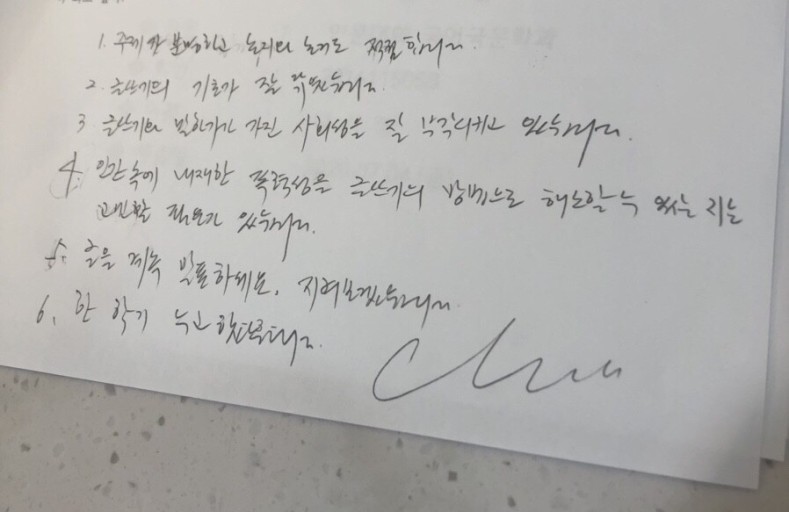 1. 주제가 분명하고 논지의 논거도 적절합니다.
2. 글쓰기의 기초가 잘 되었습니다.
3 글쓰기와 말하기가 가진 사회성을 잘 부각시키고 있습니다.
4. 인간 속에 내재한 폭력성을 글쓰기의 방법으로 해소할 수 있는 지는
고민할 필요가 있습니다.
5. 글을 계속 발표하세요. 지켜보겠습니다.
6. 한 학기 수고 했습니다.